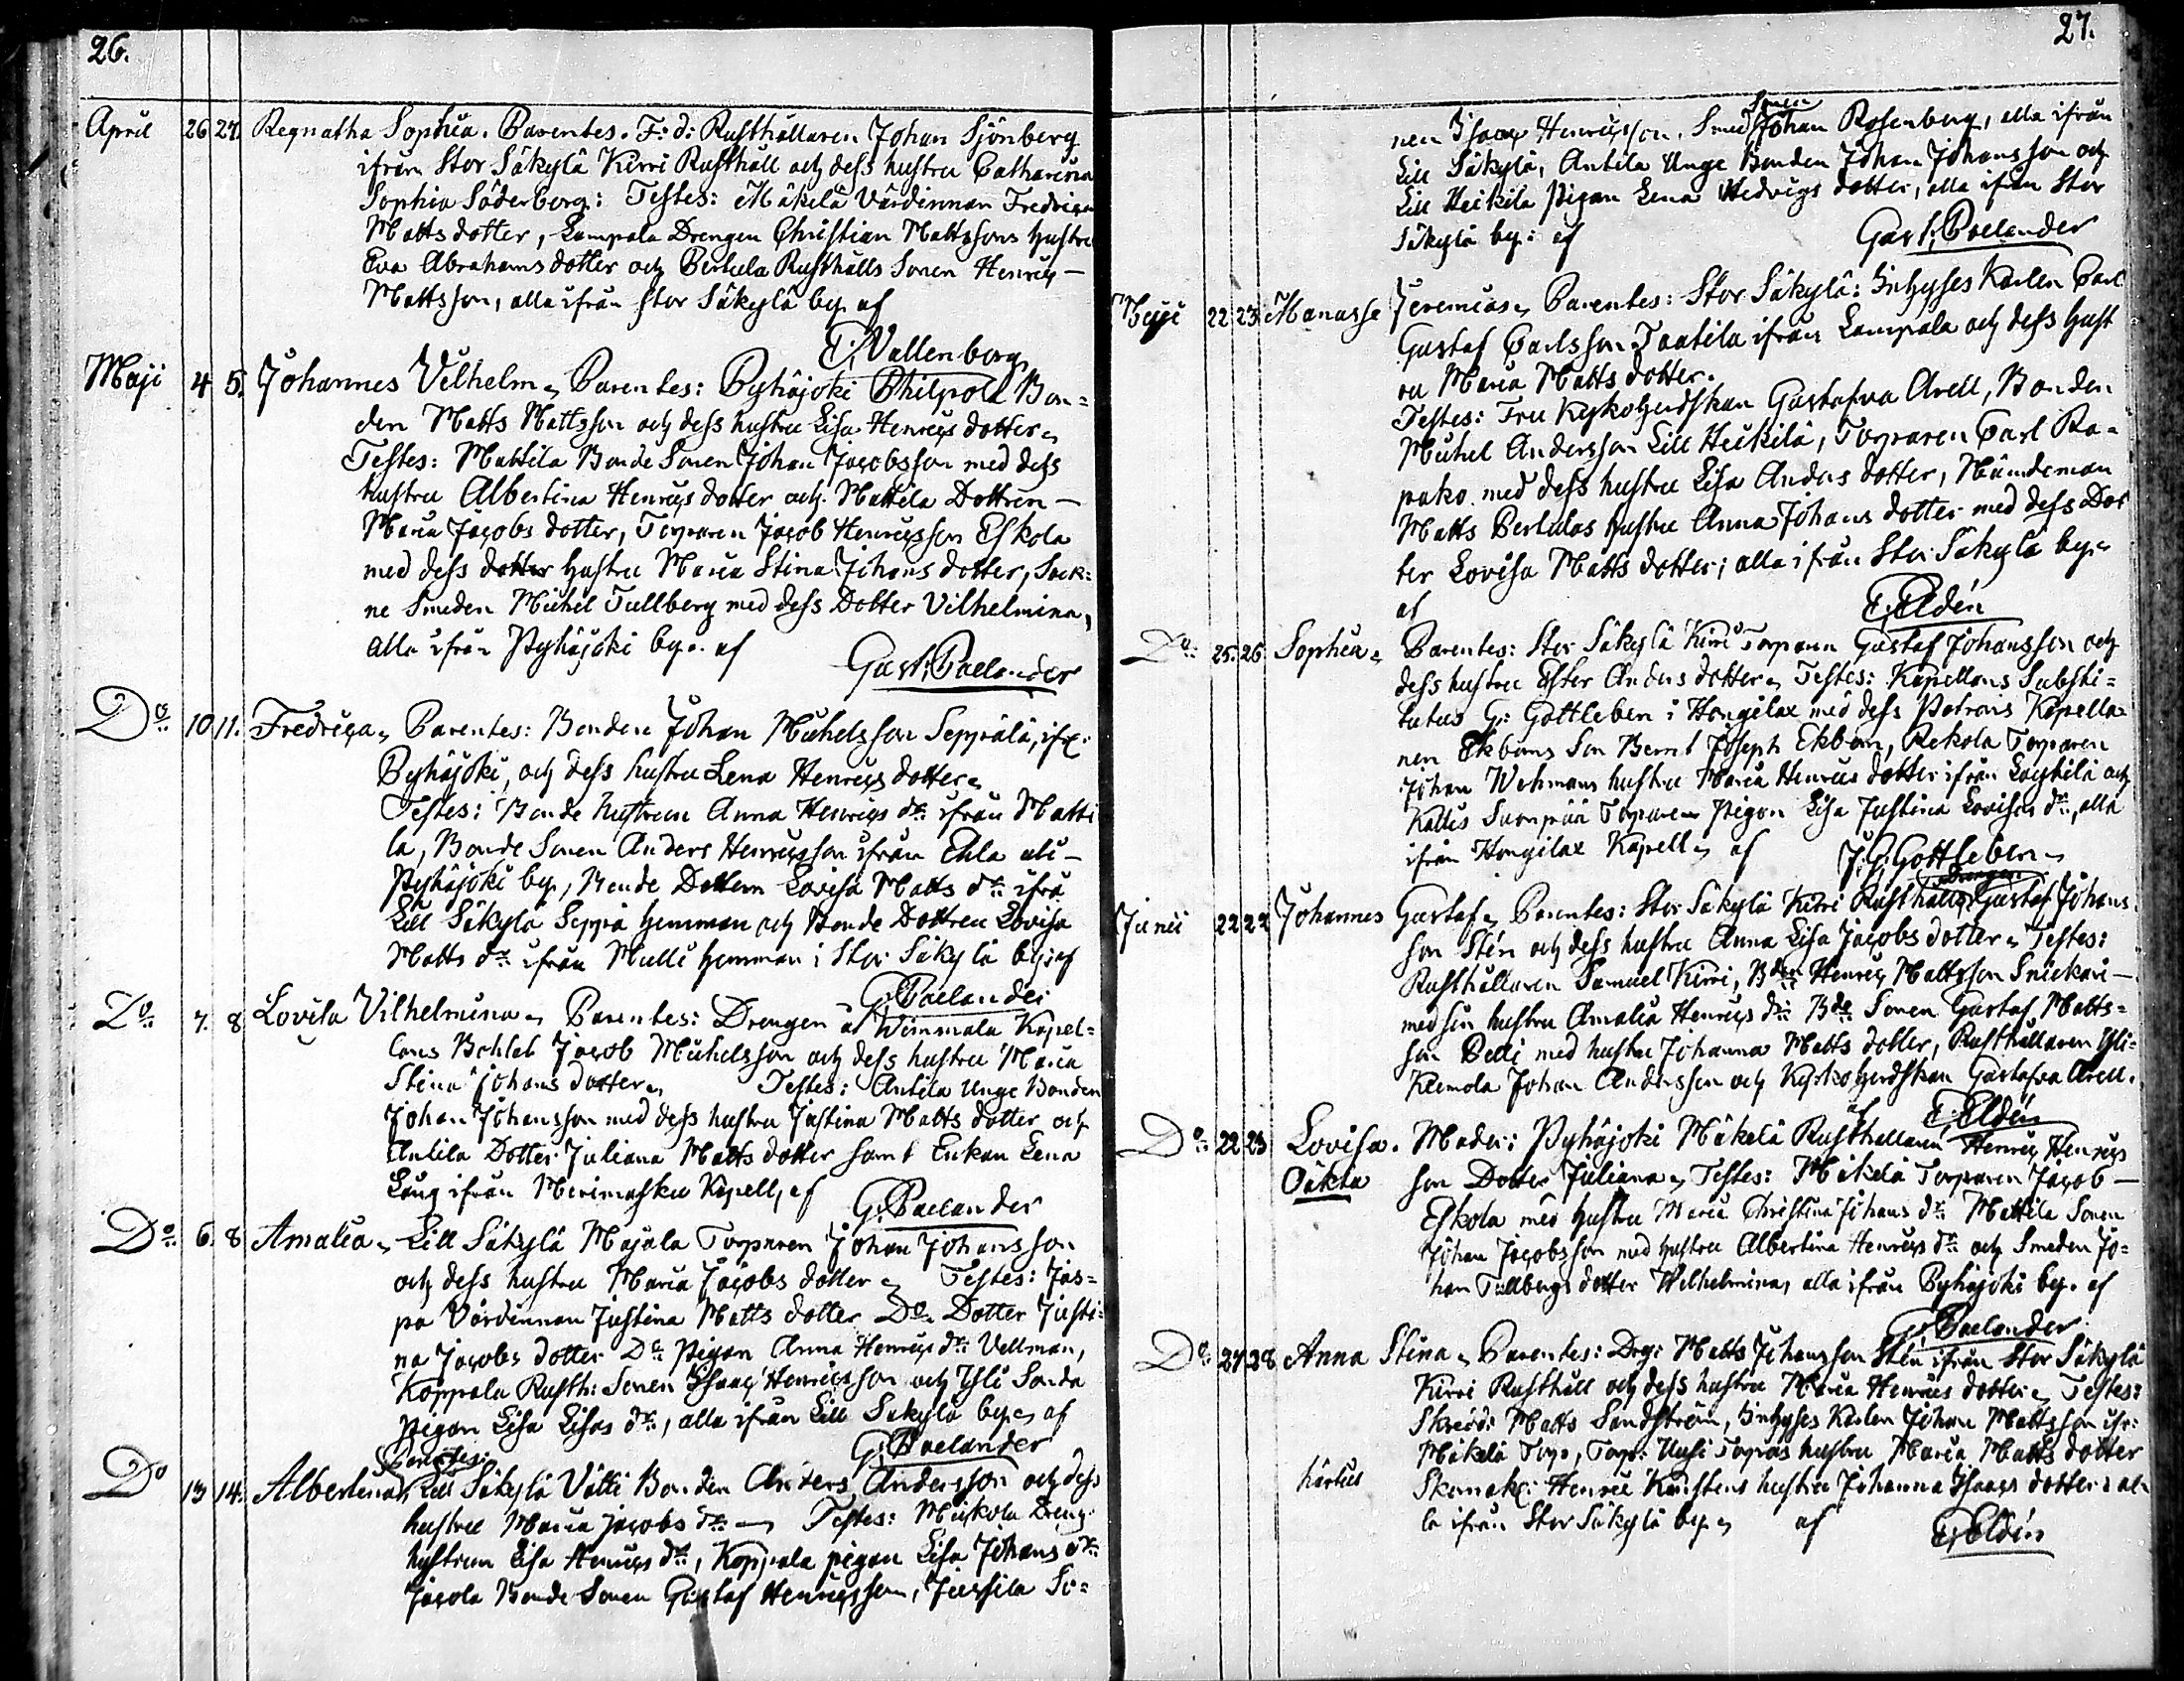 26.
April 26 27. Regnatha Sophia. Parentes. F: d: Rusthållaren Johan Sjönberg
ifrån Stor Säkylä Kirri Rusthåll och dess hustru Catharina
Sophia Söderberg: Testes: Mäkilä Värdinnan Fredrica
Matts dotter, Lampola Drengen Christian Mattssons hustru
Eva Abrahams dotter och Bertula Rusthålls Sonen Henric
Mattsson, alla ifrån Stor Säkylä by. af
Vallenberg
Maji 4 5. Johannes Vilhelm, Parentes: Pyhäjoki Philpola Bon=
den Matts Mattsson och dess hustru Lisa Henrics dotter
Testes: Mattila Bonde Sonen Johan Jacobsson med dess
hustru Albertina Henrics dotter och Mattila Dottren
Maria Jacobs dotter, Torparen Jacob Henricsson Eskola
med dess dotter hustru Maria Stina Johans dotter, Sock=
ne Smeden Michel Tullberg med dess Dotter Vilhelmina,
alla ifrån Pyhäjoki by. af
Gust: Paelander
Do 10 11. Fredrica, Parentes: Bonden Johan Michelsson Seppälä, ifr.
Pyhäjoki, och dess hustru Lena Henrics dotter
Testes: Bonde hustrun Anna Henrics dr ifrån Matti
la, Bonde Sonen Anders Henricsson ifrån uti
Pyhäjoki by, Bonde Dottern Lovisa Matts dr ifrå
Lill Säkylä Seppä hemman och Bonde Dottren Lovisa
Matts dr ifrån Mulli hemman i Stor Säkylä by: af
G: Paelander
Do 7. 8 Lovisa Vilhelmina, Parentes: Drengen å Wimmala Kapel=
lans Bohlet Jacob Michelsson och dess hustru Maria
Stina Johans dotter Testes: Antila Unge Bonden
Johan Johansson med dess hustru Justina Matts dotter och
Antila Dotter Juliana Matts dotter samt Enkan Lena
ifrån Merimasku Kapell, af
G: Paelander
Do 6. 8 Amalia, Lill Säkylä Majala Torparen Johan Johansson
och dess hustru Maria Jacobs dotter Testes: Jas=
pa Värdinnan Justina Matts dotter Do Dotter Justi=
na Jacobs dotter Do Pigan Anna Henrics dr Vellman,
Koppala Rusth: Sonen Isaac Henricsson och Yli Sonda
Pigan Lisa Lisas dr, alla ifrån Lill Säkylä by af
G: Paelander
Parentes:
Do 13 14. Albertina, Lill Säkylä Vätti Bonden Anders Andersson och dess
hustru Maria Jacobs dr Testes: Muskola Dreng
hustrun Lisa Henrics dr, Koppala pigan Lisa Johans dr
Jacola Bonde Sonen Gustaf Henricsson, Jussila So=
27.
nen Isaac Henricsson, Smed Sonen Johan Rosenberg, alla ifrån
Lill Säkylä, Antila Unge Bonden Johan Johansson och
Lill Heikilä Pigan Lena Hedvigs dotter, alla ifrån Stor
Säkylä by: af
Gust: Paelander
Maji 22 23 Manasse Jeremias, Parentes: Stor Säkylä: Inhyses Karlen Carl
Gustaf Carlsson Taatila ifrån Lampola och dess hust
ru Maria Matts dotter.
Testes: Fru Kyrkoherdskan Gustafva Arell, Bonden
Michel Andersson Lill Heikilä, Torparen Carl Ra=
pako med dess hustru Lisa Anders dotter, Nämdeman
Matts Bertulas hustru Anna Johans dotter med dess Dot
ter Lovisa Matts dotter; alla ifrån Stor Säkylä by
af
E: Eldén
Do 25. 26 Sophia, Parentes: Stor Säkylä Kirri Torparen Gustaf Johansson och
dess hustru Ester Anders dotter, Testes: Kapellans Substi=
tutus G: Gottleben i Hongilax med dess Patrons Kapella=
nen Ekboms Son Bernt Joseph Ekbom, Rekola Torparen
Johan Wehmans hustru Maria Henrics dotter ifrån och
Kallis Suonpää Torparens Pigan Lisa Justina Lovisas dr, alla
ifrån Hongilax Kapell, af
J: G: Gottleben
Junii 22 22 Johannes Gustaf, Parentes: Stor Säkylä Kirri Rusthålls Drengen Gustaf Johans
son Stén och dess hustru Anna Lisa Jacobs dotter, Testes:
Rusthållaren Samuel Kirri, Bden Henric Mattsson Snickari
med sin hustru Amalia Henrics dr Bde Sonen Gustaf Matts=
son Pelli med hustru Johanna Matts dotter, Rusthållaren Yli=
Klemola Johan Andersson och Kyrkoherdskan Gustafva Arell.
af E: Eldén
Do 22 23 Lovisa. Moder: Pyhäjoki Mäkelä Rusthållaren Henric Henrics
Oäkta son Dotter Juliana, Testes: Mäkelä Torparen Jacob
Eskola med hustru Maria Christina Johans dr Mattila Sonen
Johan Jacobsson med hustru Albertina Henrics dr och Smeden Jo=
han Tullbergs dotter Wilhelmina, alla ifrån Pyhäjoki by. af
G: Paelander
Do 27. 28 Anna Stina, Parentes: Drg: Matts Johansson Stén ifrån Stor Säkylä
Kirri Rusthåll och dess hustru Maria Henrics dotter, Testes:
Skrädd: Matts Sandström, Inhyses Karlen Johan Mattsson ifr:
Mäkelä Torp, Torp: Uusi Torpas hustru Maria Matts dotter
hustru Henric hustru Johanna Isaacs dotter: al=
la ifrån Stor Säkylä by af
E: Eldén